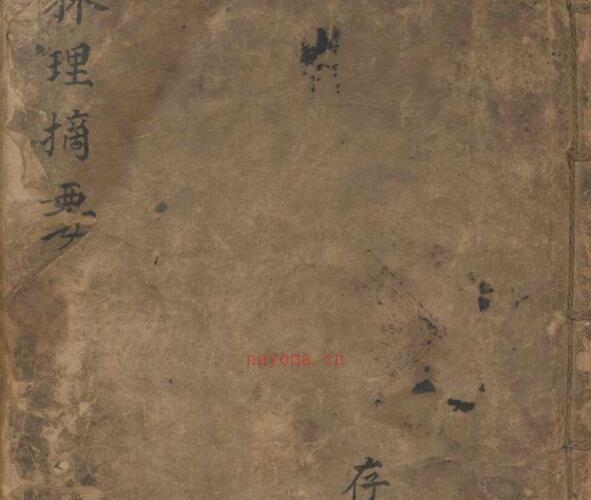 理摘要
nayona.cn
存